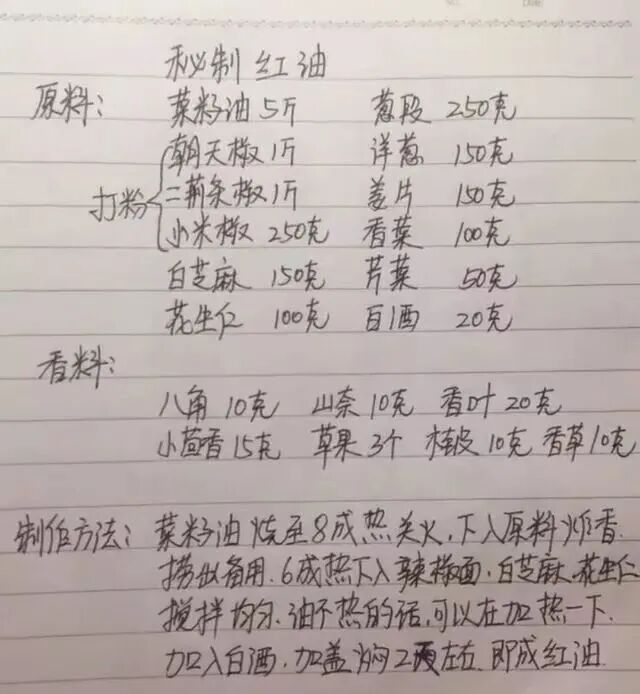 秘制红油
原料: 菜籽油5斤 葱段 250克
朝天椒1斤 洋葱 150克
打粉 二荆条椒1斤 姜片 150克
小米椒 250克 香菜 100克
白芝麻 150克 芹菜 50克
花生仁 100克 白酒 20克
香料:
八角10克 山奈10克 香叶20克
小茴香15克 草果3个 桂皮10克 香草10克
制作方法: 菜籽油烧至8成热关火,下入原料炸香.
捞出备用.6成热下入辣椒面.白芝麻.花生仁
搅拌均匀.油不热的话,可以在加热一下.
加入白酒,加盖焖2 左右.即成红油.